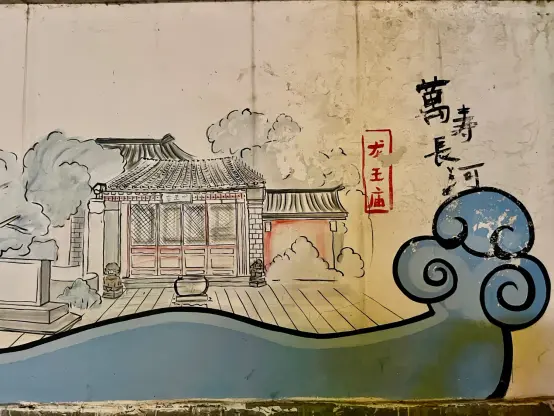 萬寿長河
龙王庙